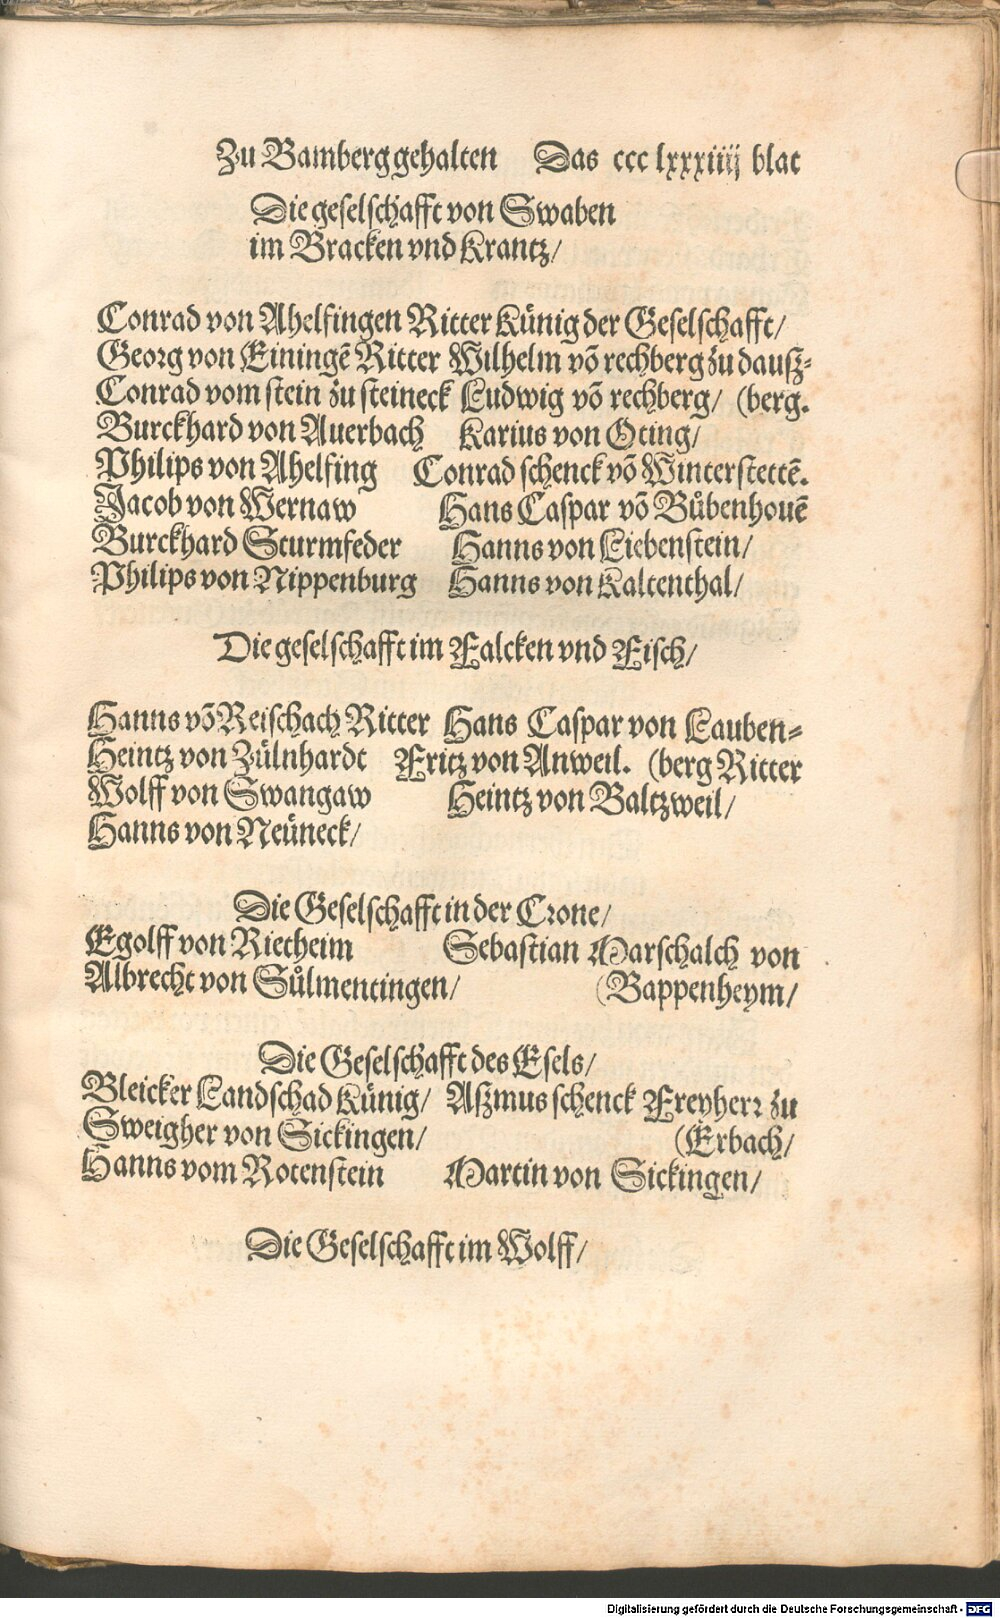 Zu Bamberg gehalten Das ccc lxxxiiij blat
Die geselschafft von Swaben
im Bracken vnd Krantz/
Conrad von Ahelfingen Ritter Künig der Geselschafft/
Georg von Einingẽ Ritter Wilhelm võ rechberg zu dausz-
Conrad vom stein zu steineck Ludwig võ rechberg/ (berg.
Burckhard von Auerbach Karius von Oting/
Philips von Ahelfing Conrad schenck võ Winterstettẽ.
Jacob von Wernaw Hans Caspar võ Bůbenhouẽ
Burckhard Sturmfeder Hanns von Liebenstein/
Philips von Nippenburg Hanns von Kaltenthal/
Die geselschafft im Falcken vnd Fisch/
Hanns võ Reischach Ritter Hans Caspar von Lauben-
Heintz von Zülnhardt Fritz von Anweil. (berg Ritter
Wolff von Swangaw Heintz von Baltzweil/
Hanns von Neüneck/
Die Geselschafft in der Crone/
Egolff von Rietheim Sebastian Marschalch von
Albrecht von Sůlmentingen/ (Bappenheym/
Die Geselschafft des Esels/
Bleicker Landschad Künig/ Aszmus schenck Freyherr zu
Sweigher von Sickingen/ (Erbach/
Hanns vom Rotenstein Martin von Sickingen/
Die Geselschafft im Wolff/
Digitalisierung gefördert durch die Deutsche Forschungsgemeinschaft - DFG